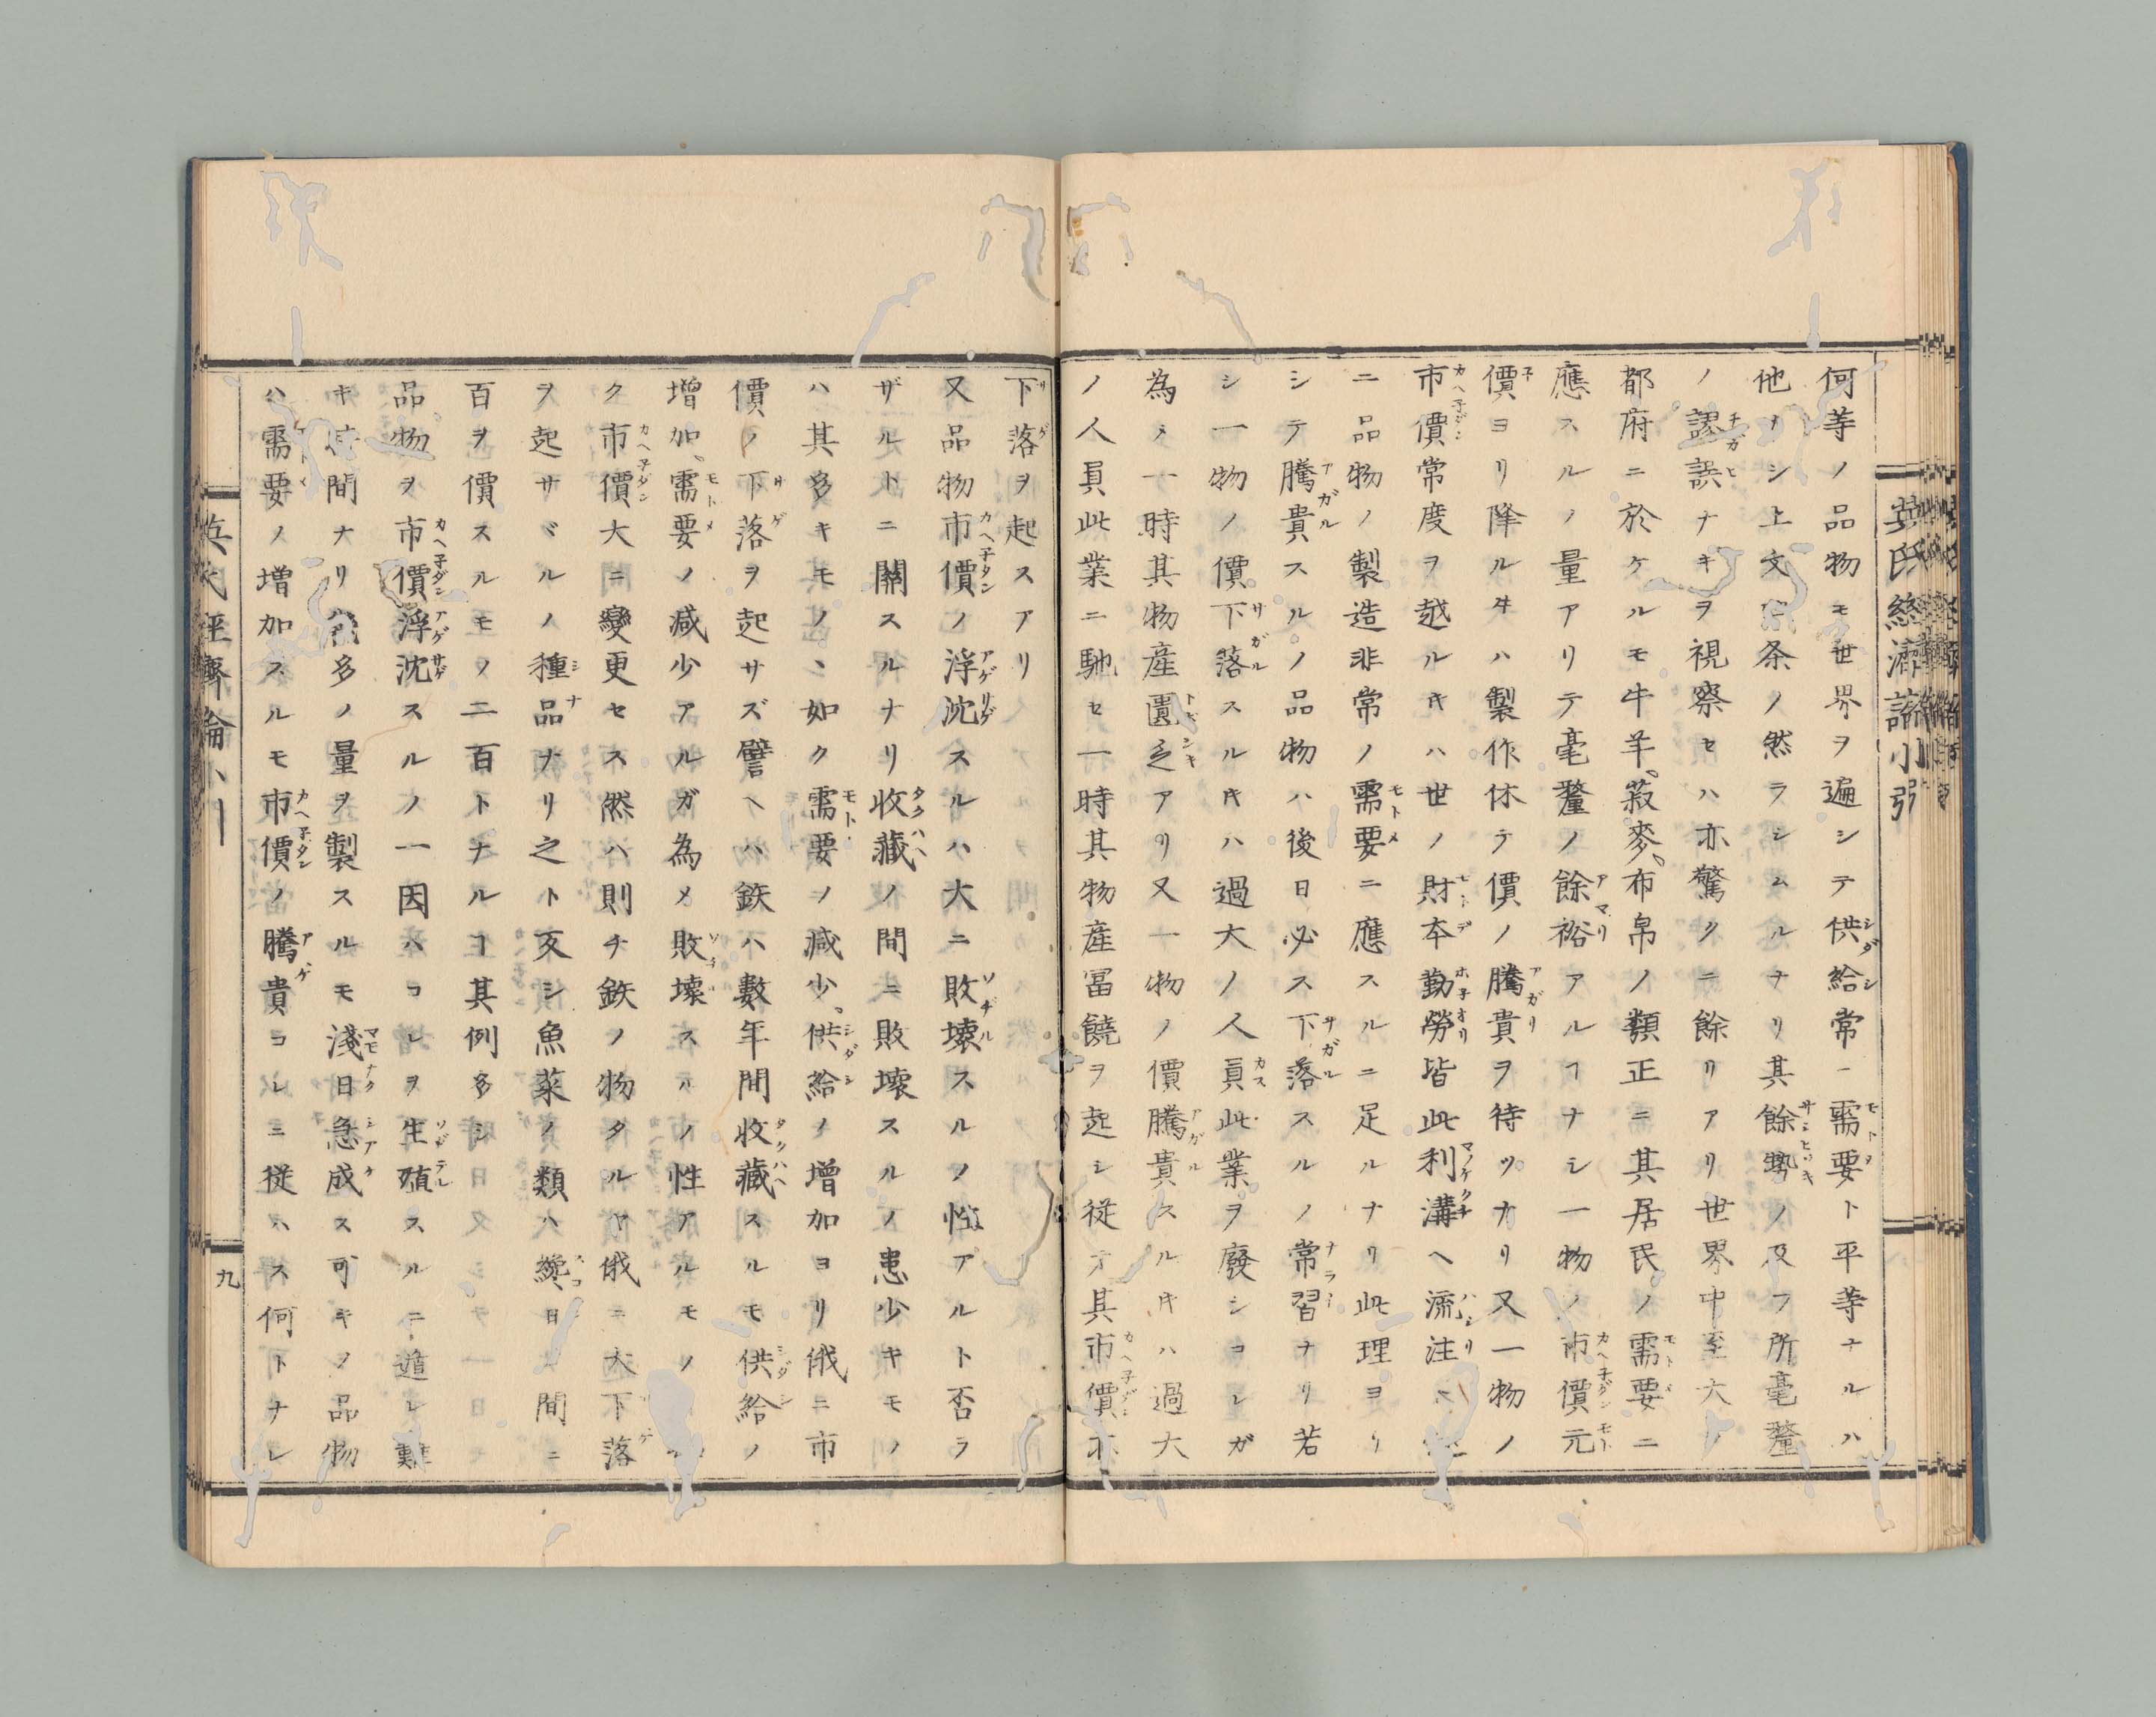 何等ノ品物モ世界ヲ遍シテ供給常ニ需要ト平等ナルハ
他ナシ上文条ノ然ラシムルナリ其餘勢ノ及フ所毫釐
ノ誤ナキヲ視察セハ亦驚クニ餘リアリ世界中至大ノ
都府ニ於ケルモ牛羊、菽麥、布帛ノ類正ニ其居民ノ需要ニ
應スルノ量アリテ毫釐ノ餘裕アルヿナシ一物ノ市價元
價ヨリ降ルキハ製作休テ價ノ騰貴ヲ待ツナリ又一物ノ
市價常度ヲ越ルキハ世ノ財本勤勞皆此利溝ヘ流注
ニ品物ノ製造非常ノ需要ニ應スルニ足ルナリ此理ヨリ
シテ騰貴スルノ品物ハ後日必ス下落スルノ常習ナリ若
シ一物ノ價下落スルキハ過大ノ人員此業ヲ廢シコレガ
為メ一時其物産匱乏アリ又一物ノ價騰貴スルキハ過大
ノ人員此業ニ馳セ一時其物産冨饒ヲ起シ従テ其市價亦
下落ヲ起スアリ
又品物市價ノ浮沈スルハ大ニ敗壊スルノ性アルト否ラ
ザルトニ關スルナリ收藏ノ間ニ敗壊スルノ患少キモノ
ハ其多キモノヽ如ク需要ノ減少、供給ノ増加ヨリ俄ニ市
價ノ下落ヲ起サズ譬ヘハ鉄ハ數年間收藏スルモ供給ノ
増加、需要ノ減少アルガ為メ敗壊スルノ性アルモノ
ク市價大ニ變更セス然ハ則チ鉄ノ物タルヤ俄ニ大下落
ヲ起サヾルノ種品ナリ之ト反シ魚菜ノ類ハ纔日ノ間ニ
百ヲ價スルモノ二百トナルヿ其例多シ
品物ヲ市價浮沈スルノ一因ハコレヲ生殖スルニ遁レ難
キ時間ナリ然多ノ量ヲ製スルモ淺日急成ス可キノ品物
ハ需要ノ増加スルモ市價ノ騰貴コレニ従ハス何トナレ
英氏經濟論小引
九